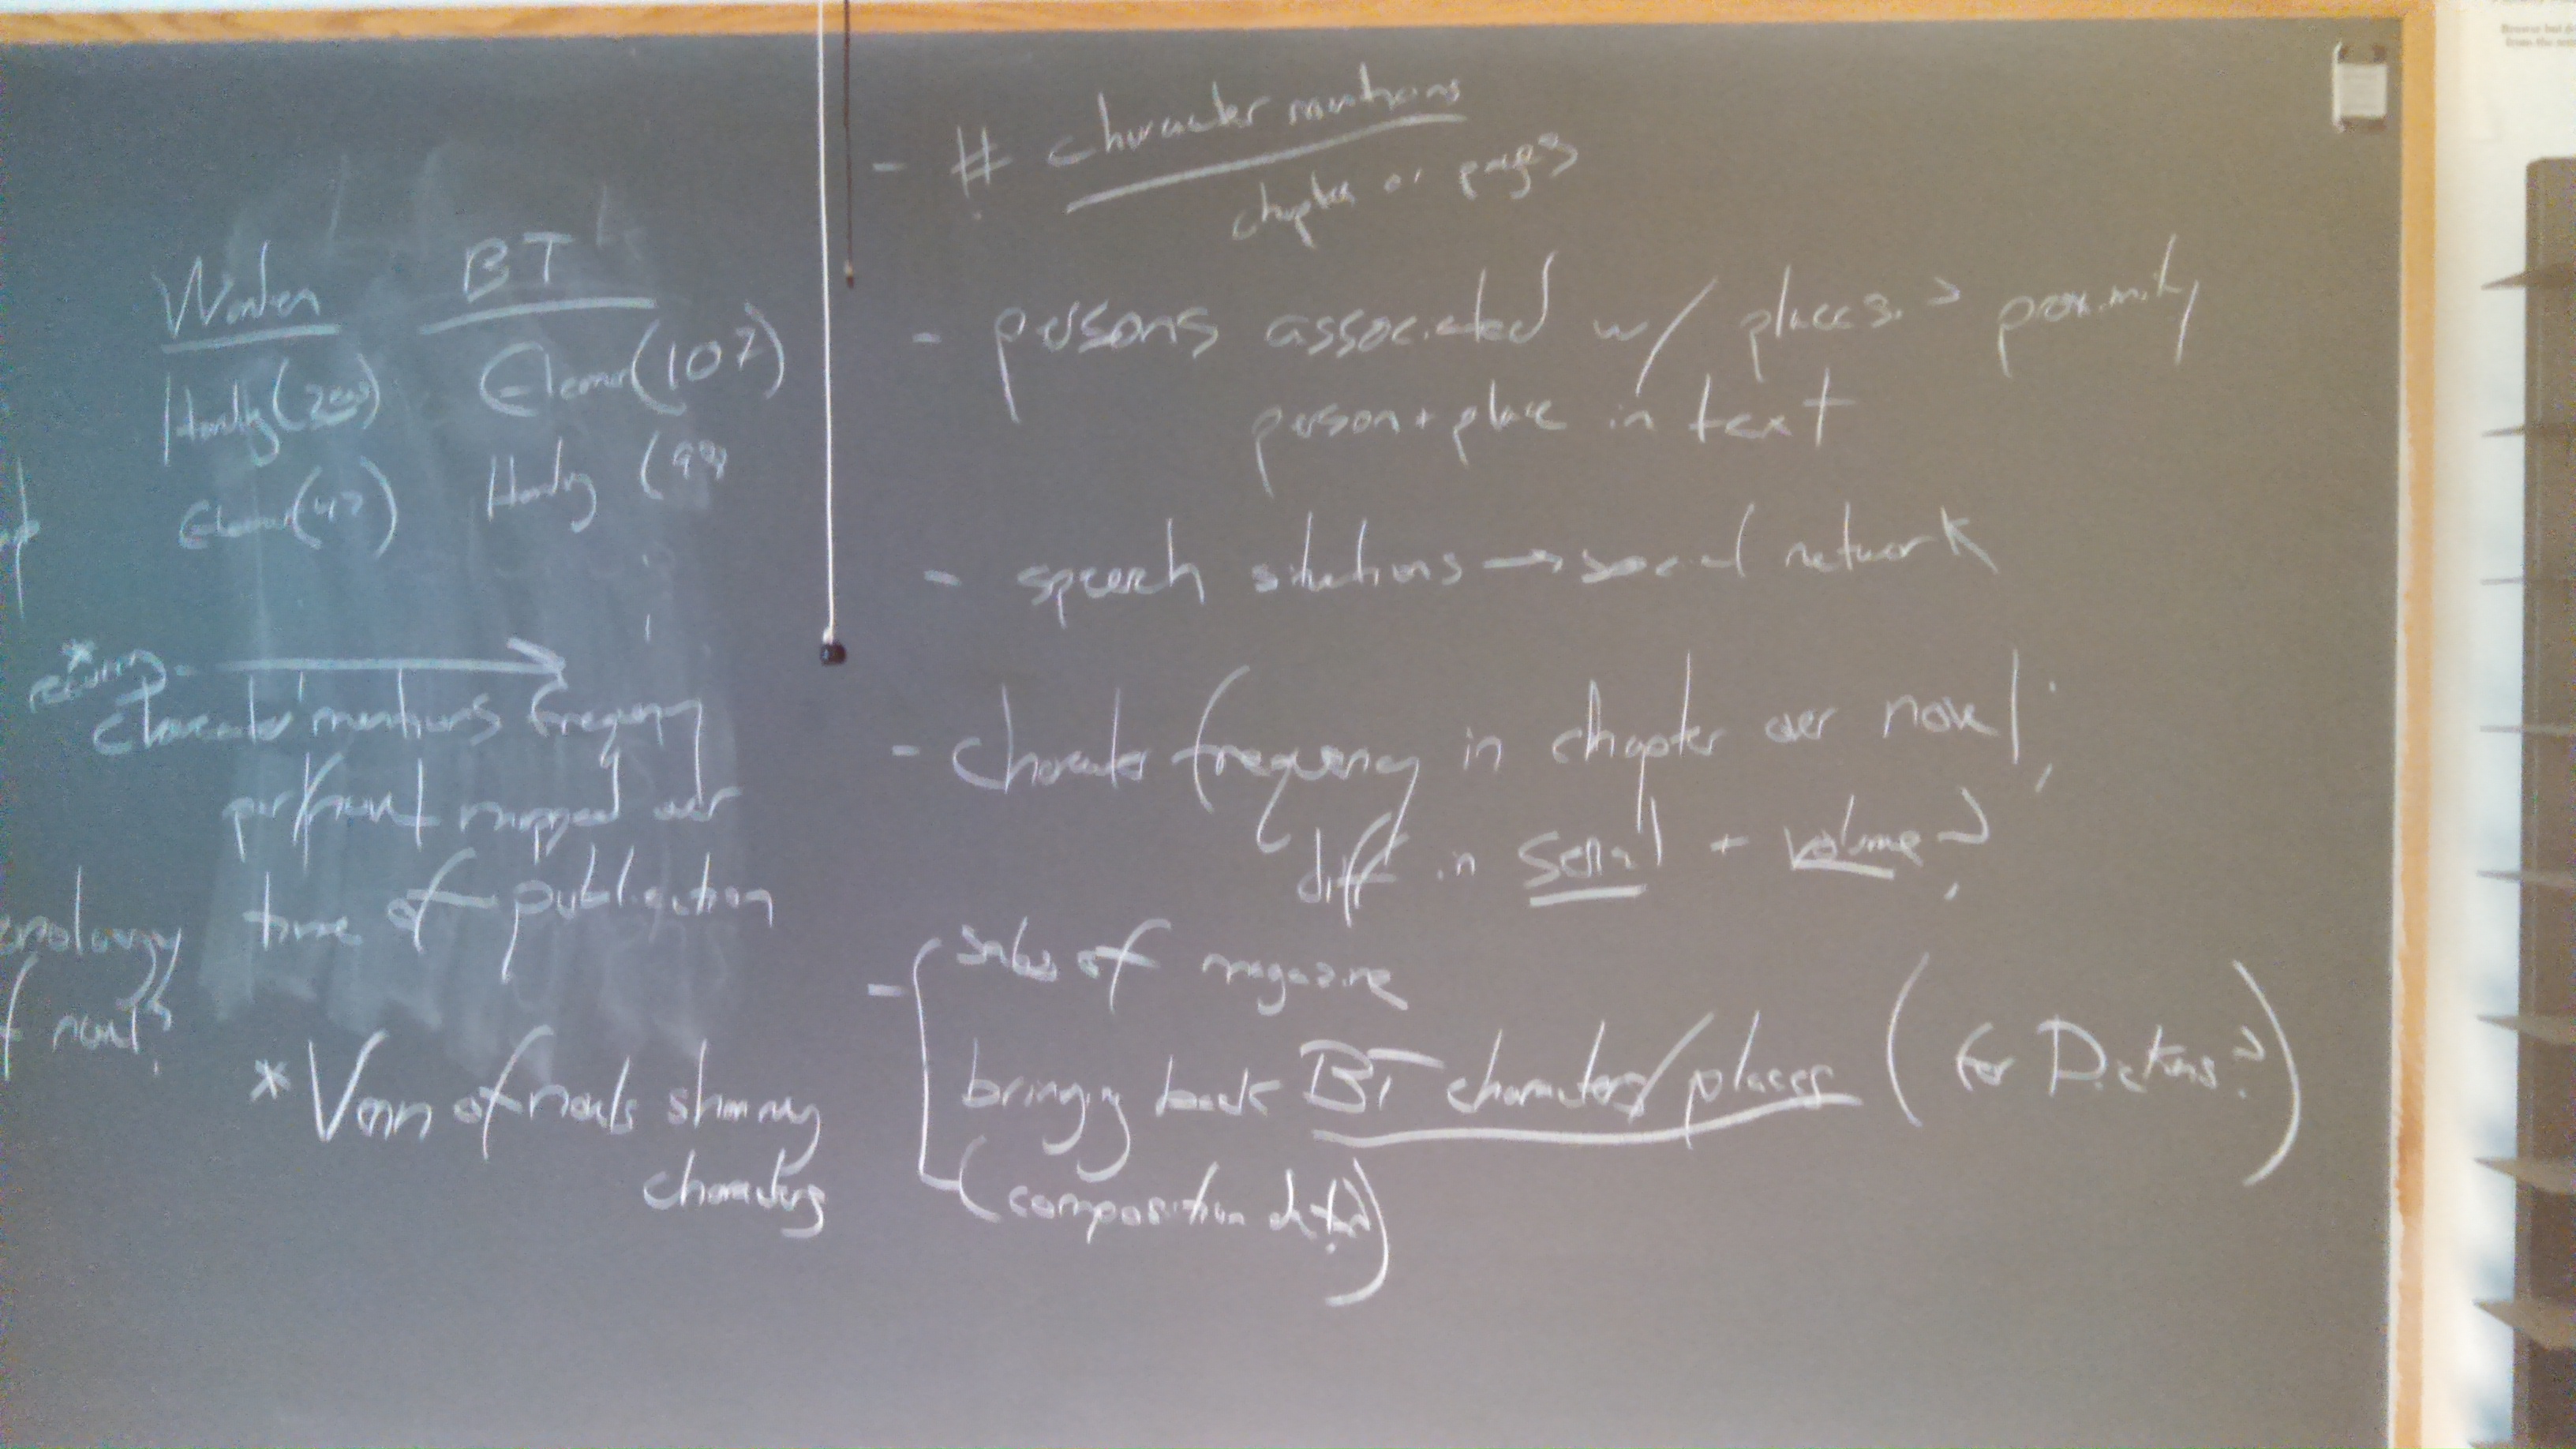 Warden
BT
Harding (200)
Eleanor (107)
Eleanor (47)
Harding (99
* recurring -
character mentions frequency
per novel mapped over
time of publication
of novel?
* Venn of novels sharing
characters
- # character mentions
chapter or pages
- persons associated w/ places > proximity
person + place in text
- speech situations → social network
- character frequency in chapter over novel;
diff in serial + volume?
- sales of magazine
bringing back BT characters/places (for Dickens?)
(composition dates?)